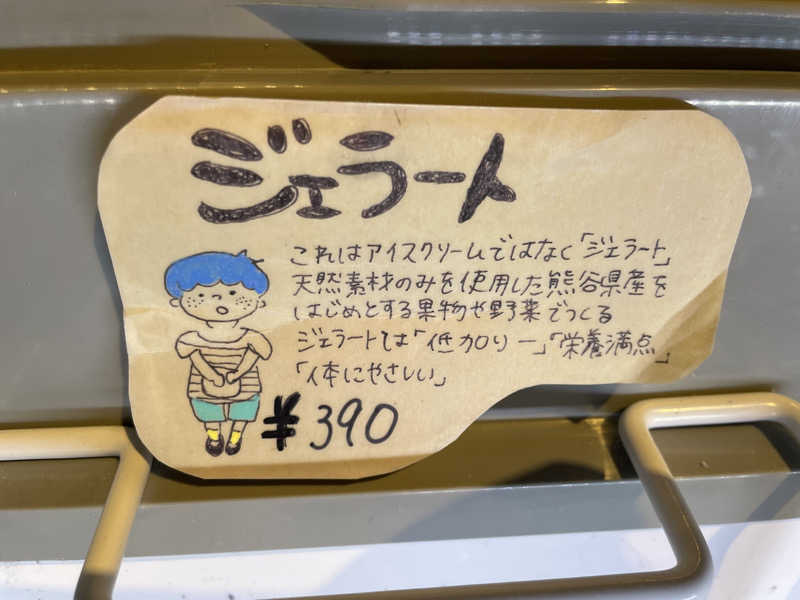 ジェラート
これはアイスクリームではなく「ジェラート」
天然素材のみを使用した熊谷県産を
はじめとする果物や野菜でつくる
ジェラートは「低カロリー」「栄養満点」
「体にやさしい」
¥390